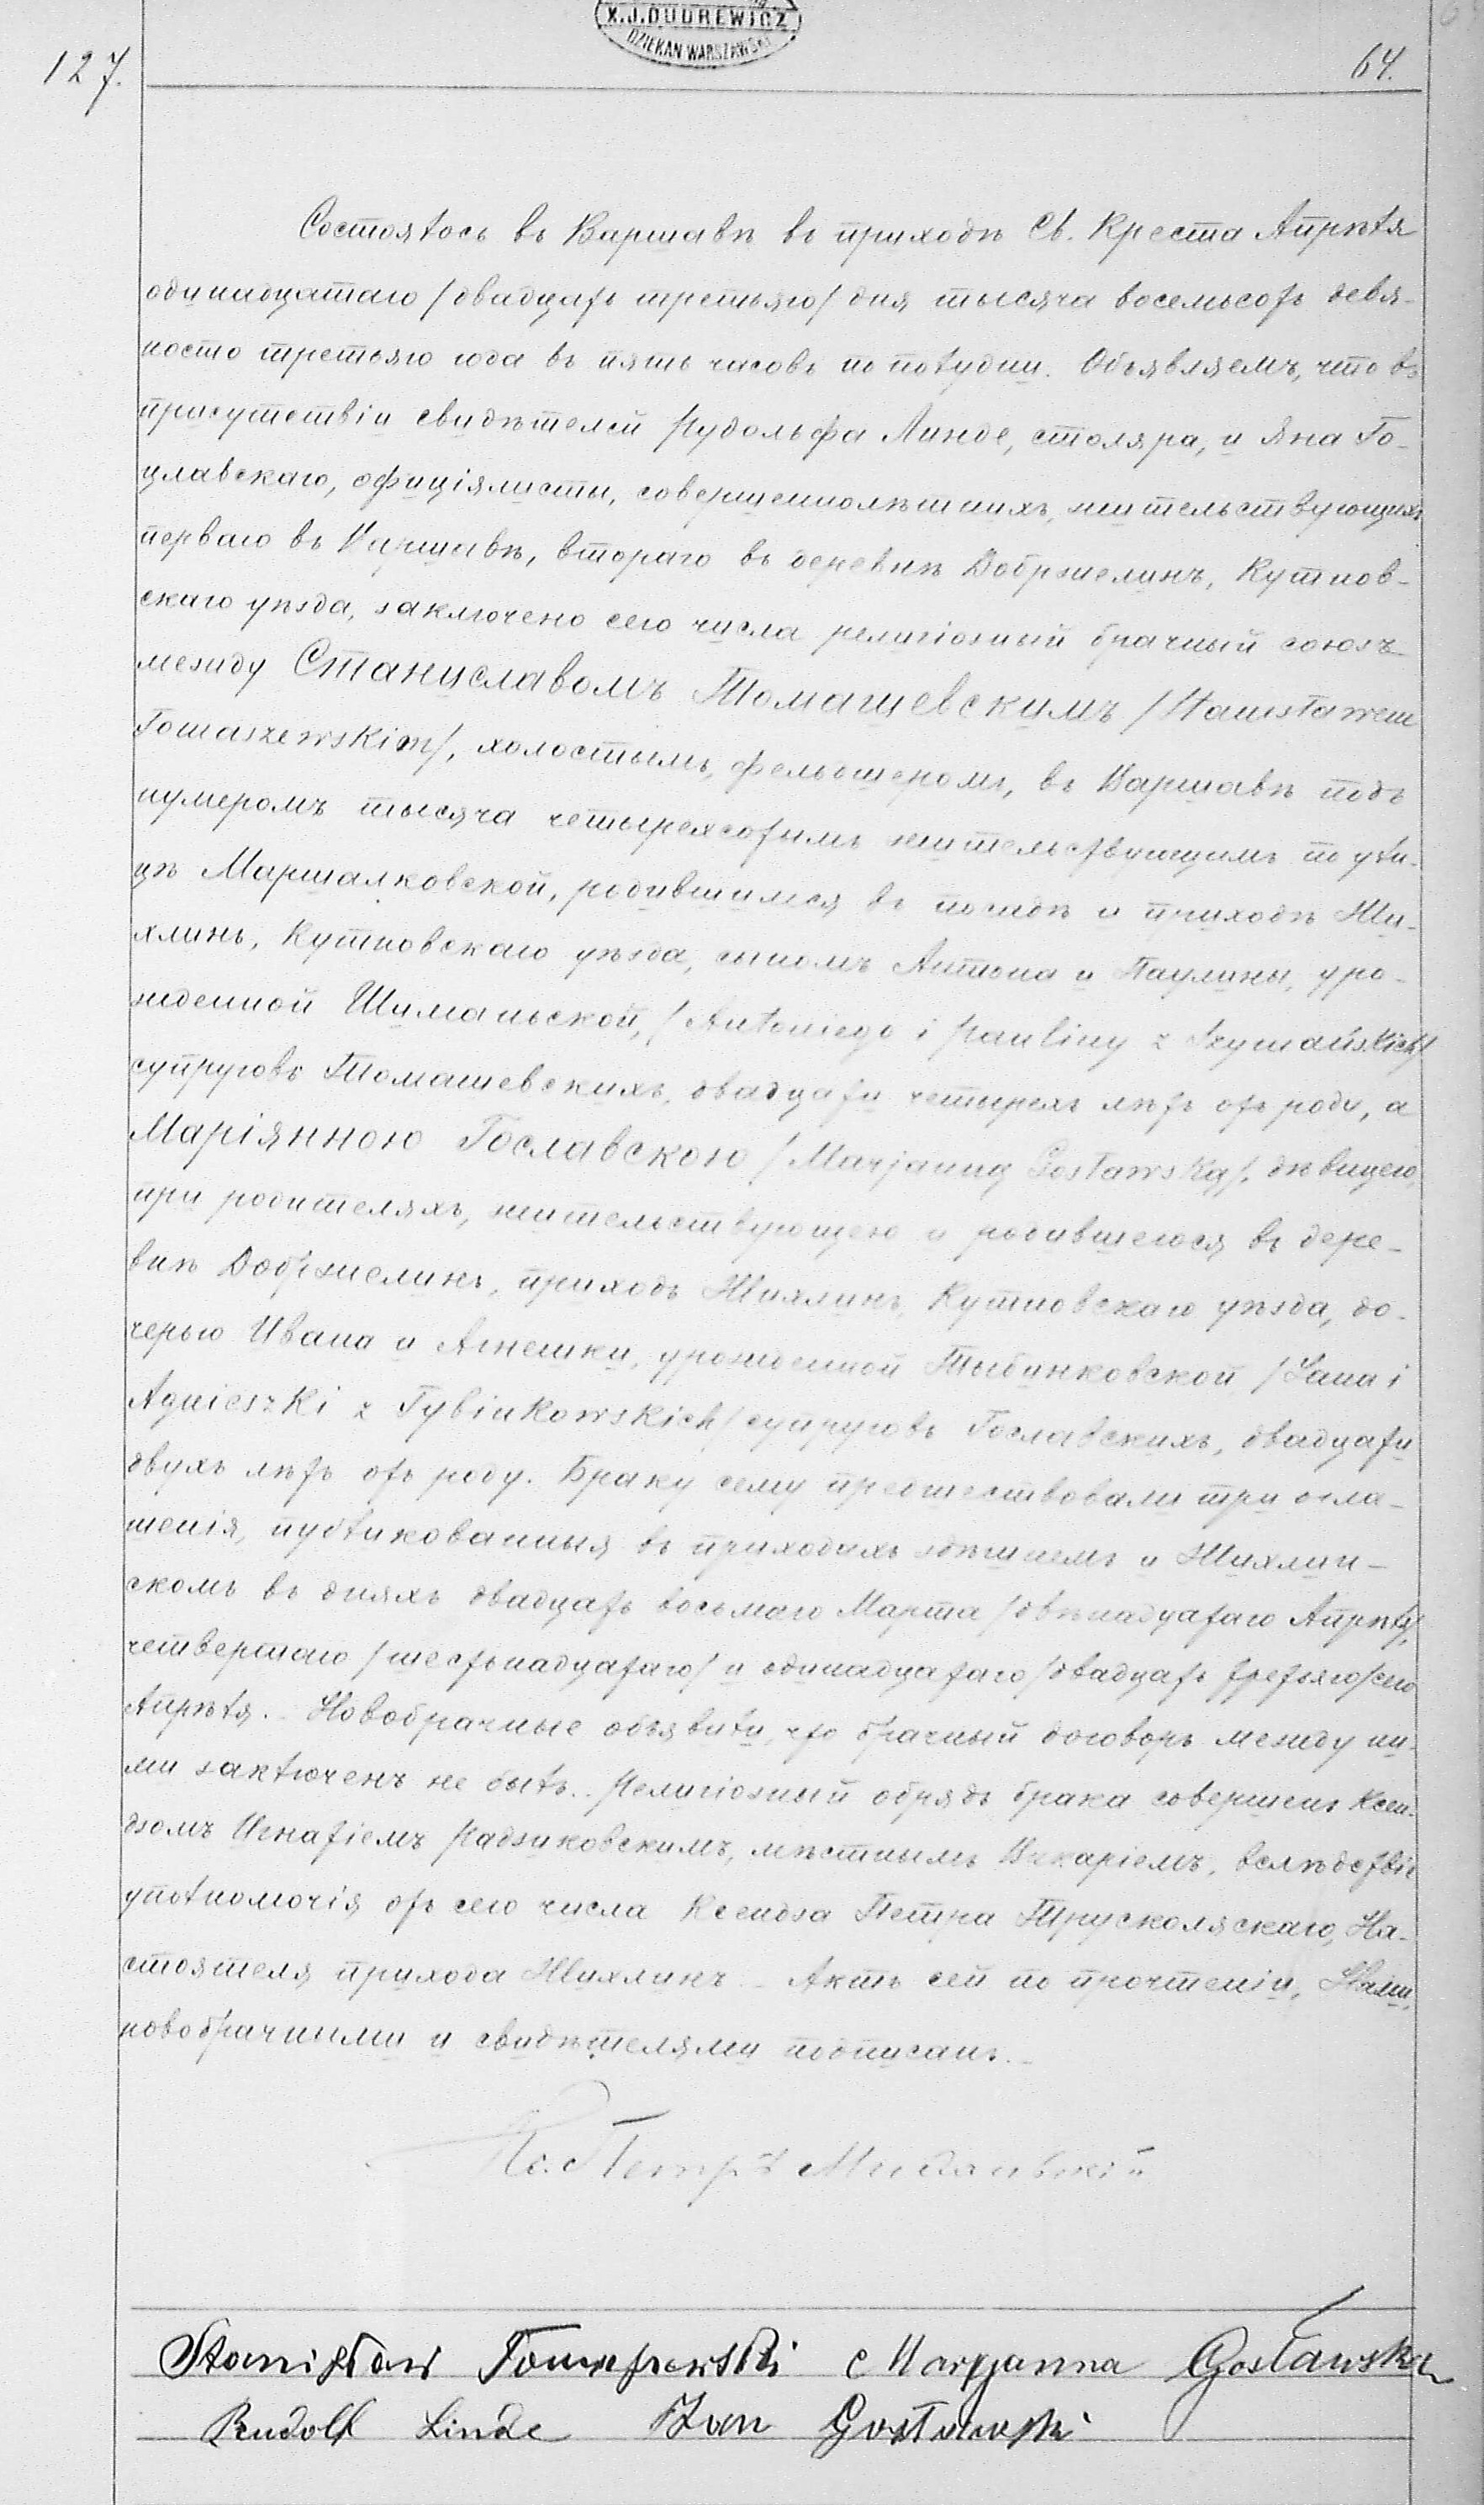 X.J.DUDREWICZ
DZIEKAN WARSZAWSKI
127.
64.
Состоялось въ Варшавѣ въ приходѣ Св. Креста Апрѣля
одинадцатаго /двадцать третьяго/ дня тысяча восемьсотъ девя-
носто третьяго года въ пять часовъ по полудни. Объявляемъ, что въ
присутствіи свидѣтелей Рудольфа Линде, столяра, и Яна Го-
славскаго, официялисты, совершеннолѣтнихъ, жительствующихъ
перваго въ Варшавѣ, втораго въ деревнѣ Добржелинъ, Кутнов-
скаго уѣзда, заключено сего числа религіозный брачный союзъ
между Станиславомъ Томашевскимъ /Stanisławem
Tomaszewskim/, холостымъ, фельдшеромъ, въ Варшавѣ подъ
нумеромъ тысяча четырехсотымъ жительствующимъ по ули-
цѣ Маршалковской, родившимся въ посадѣ и приходѣ Жи-
хлинъ, Кутновскаго уѣзда, сыномъ Антона и Паулины, уро-
жденной Шиманьской, /Antoniego i Pauliny z Szymańskich/
супруговъ Томашевскихъ, двадцати четырехъ лѣтъ отъ роду, а
Маріянною Гославскою /Marjanną Gosławską/, дѣвицею,
при родителяхъ, жительствующею и родившеюся въ дере-
внѣ Добржелинъ, приходъ Жихлинъ, Кутновскаго уѣзда, до-
черью Ивана и Агнешки, урожденной Тыбинковской /Jana i
Agnieszki z Tybinkowskich/ супруговъ Гославскихъ, двадцати
двухъ лѣтъ отъ роду. Браку сему предшествовали три огла-
шенія, публикованныя въ приходахъ здѣшнемъ и Жихлин-
скомъ въ дняхъ двадцать восьмаго Марта /двѣнадцатаго Апрѣля/,
четвертаго /шестьнадцатаго/ и одинадцатаго /двадцать третьяго/ сего
Апрѣля. Новобрачные объявили, что брачный договоръ между ни-
ми заключенъ не былъ. Религіозный обрядъ брака совершенъ Ксен-
дзомъ Игнатіемъ Радзиковскимъ, мѣстнымъ Викаріемъ, вслѣдствіе
уполномочія отъ сего числа Ксендза Петра Трусколяскаго, На-
стоятеля прихода Жихлинъ. Актъ сей по прочтеніи, Нами,
новобрачными и свидѣтелями подписанъ.
Кс. Петръ
Stanisław Tomaszewski Marjanna Gosławska
Rudolf Linde Jan Gosławski